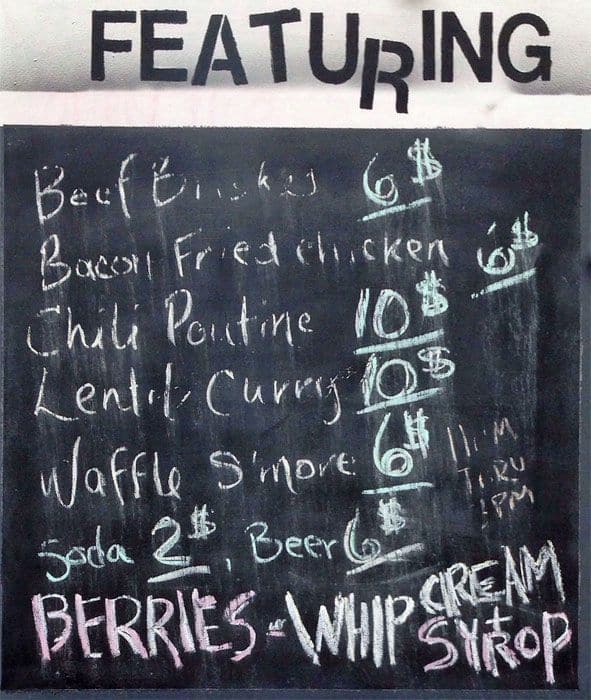 FEATURING
Beef Brisket 6$
Bacon Fried chicken 6$
Chili Poutine 10$
Lentil Curry 10$
Waffle S'more 6$
11AM
THRU
Soda 2$, Beer 6$
BERRIES - WHIP CREAM
SYROP